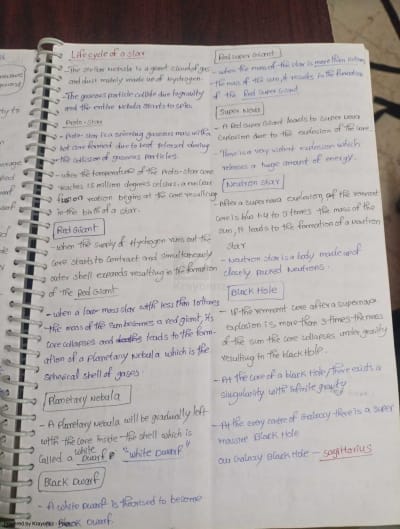 Life cycle of a star
- The stellar nebula is a giant cloud of gas
and dust mainly made up of hydrogen.
- The gaseous particle collide due to gravity
and the entire Nebula starts to spin.
Proto-star
- Proto-star is a spinning gaseous mass with a
hot core formed due to heat released during
the collision of gaseous particles.
- when the temperature of the Proto-star core
reaches 15 million degrees celsius, a nuclear
fusion reaction begins at the core resulting
in the birth of a star.
Red Giant
- when the supply of Hydrogen runs out the
core starts to contract and simultaneously
outer shell expands resulting in the formation
of the Red Giant
- when a low mass star with less than 10 times
the mass of the sun becomes a red giant, its
core collapses and leads to the form-
ation of a Planetary Nebula which is the
spherical shell of gases.
Planetary Nebula
- A Planetary Nebula will be gradually left
with the core inside the shell which is
called a white Dwarf. "white Dwarf"
Black Dwarf
- A white Dwarf is theorised to become
Black Dwarf.
Red super Giant
- when the mass of the star is more than 10 times
the mass of the sun, it results in the formation
of the Red super Giant
Super Nova
- A Red super Giant leads to super nova
Explosion due to the explosion of the core.
- There is a very violent explosion which
releases a huge amount of energy.
Neutron star
- After a supernova explosion, if the remnant
core is 1.4 to 3 times the mass of the
sun, it leads to the formation of a Neutron
star
- Neutron star is a body made up of
closely packed Neutrons.
Black Hole
- If the remnant core after a supernova
explosion is more than 3 times the mass
of the sun the core collapses under gravity
resulting in the black hole.
- At the core of a black Hole, there exists a
singularity with infinite gravity
- At the every centre of Galaxy there is a super
massive Black Hole
our Galaxy Black Hole - sagittarius